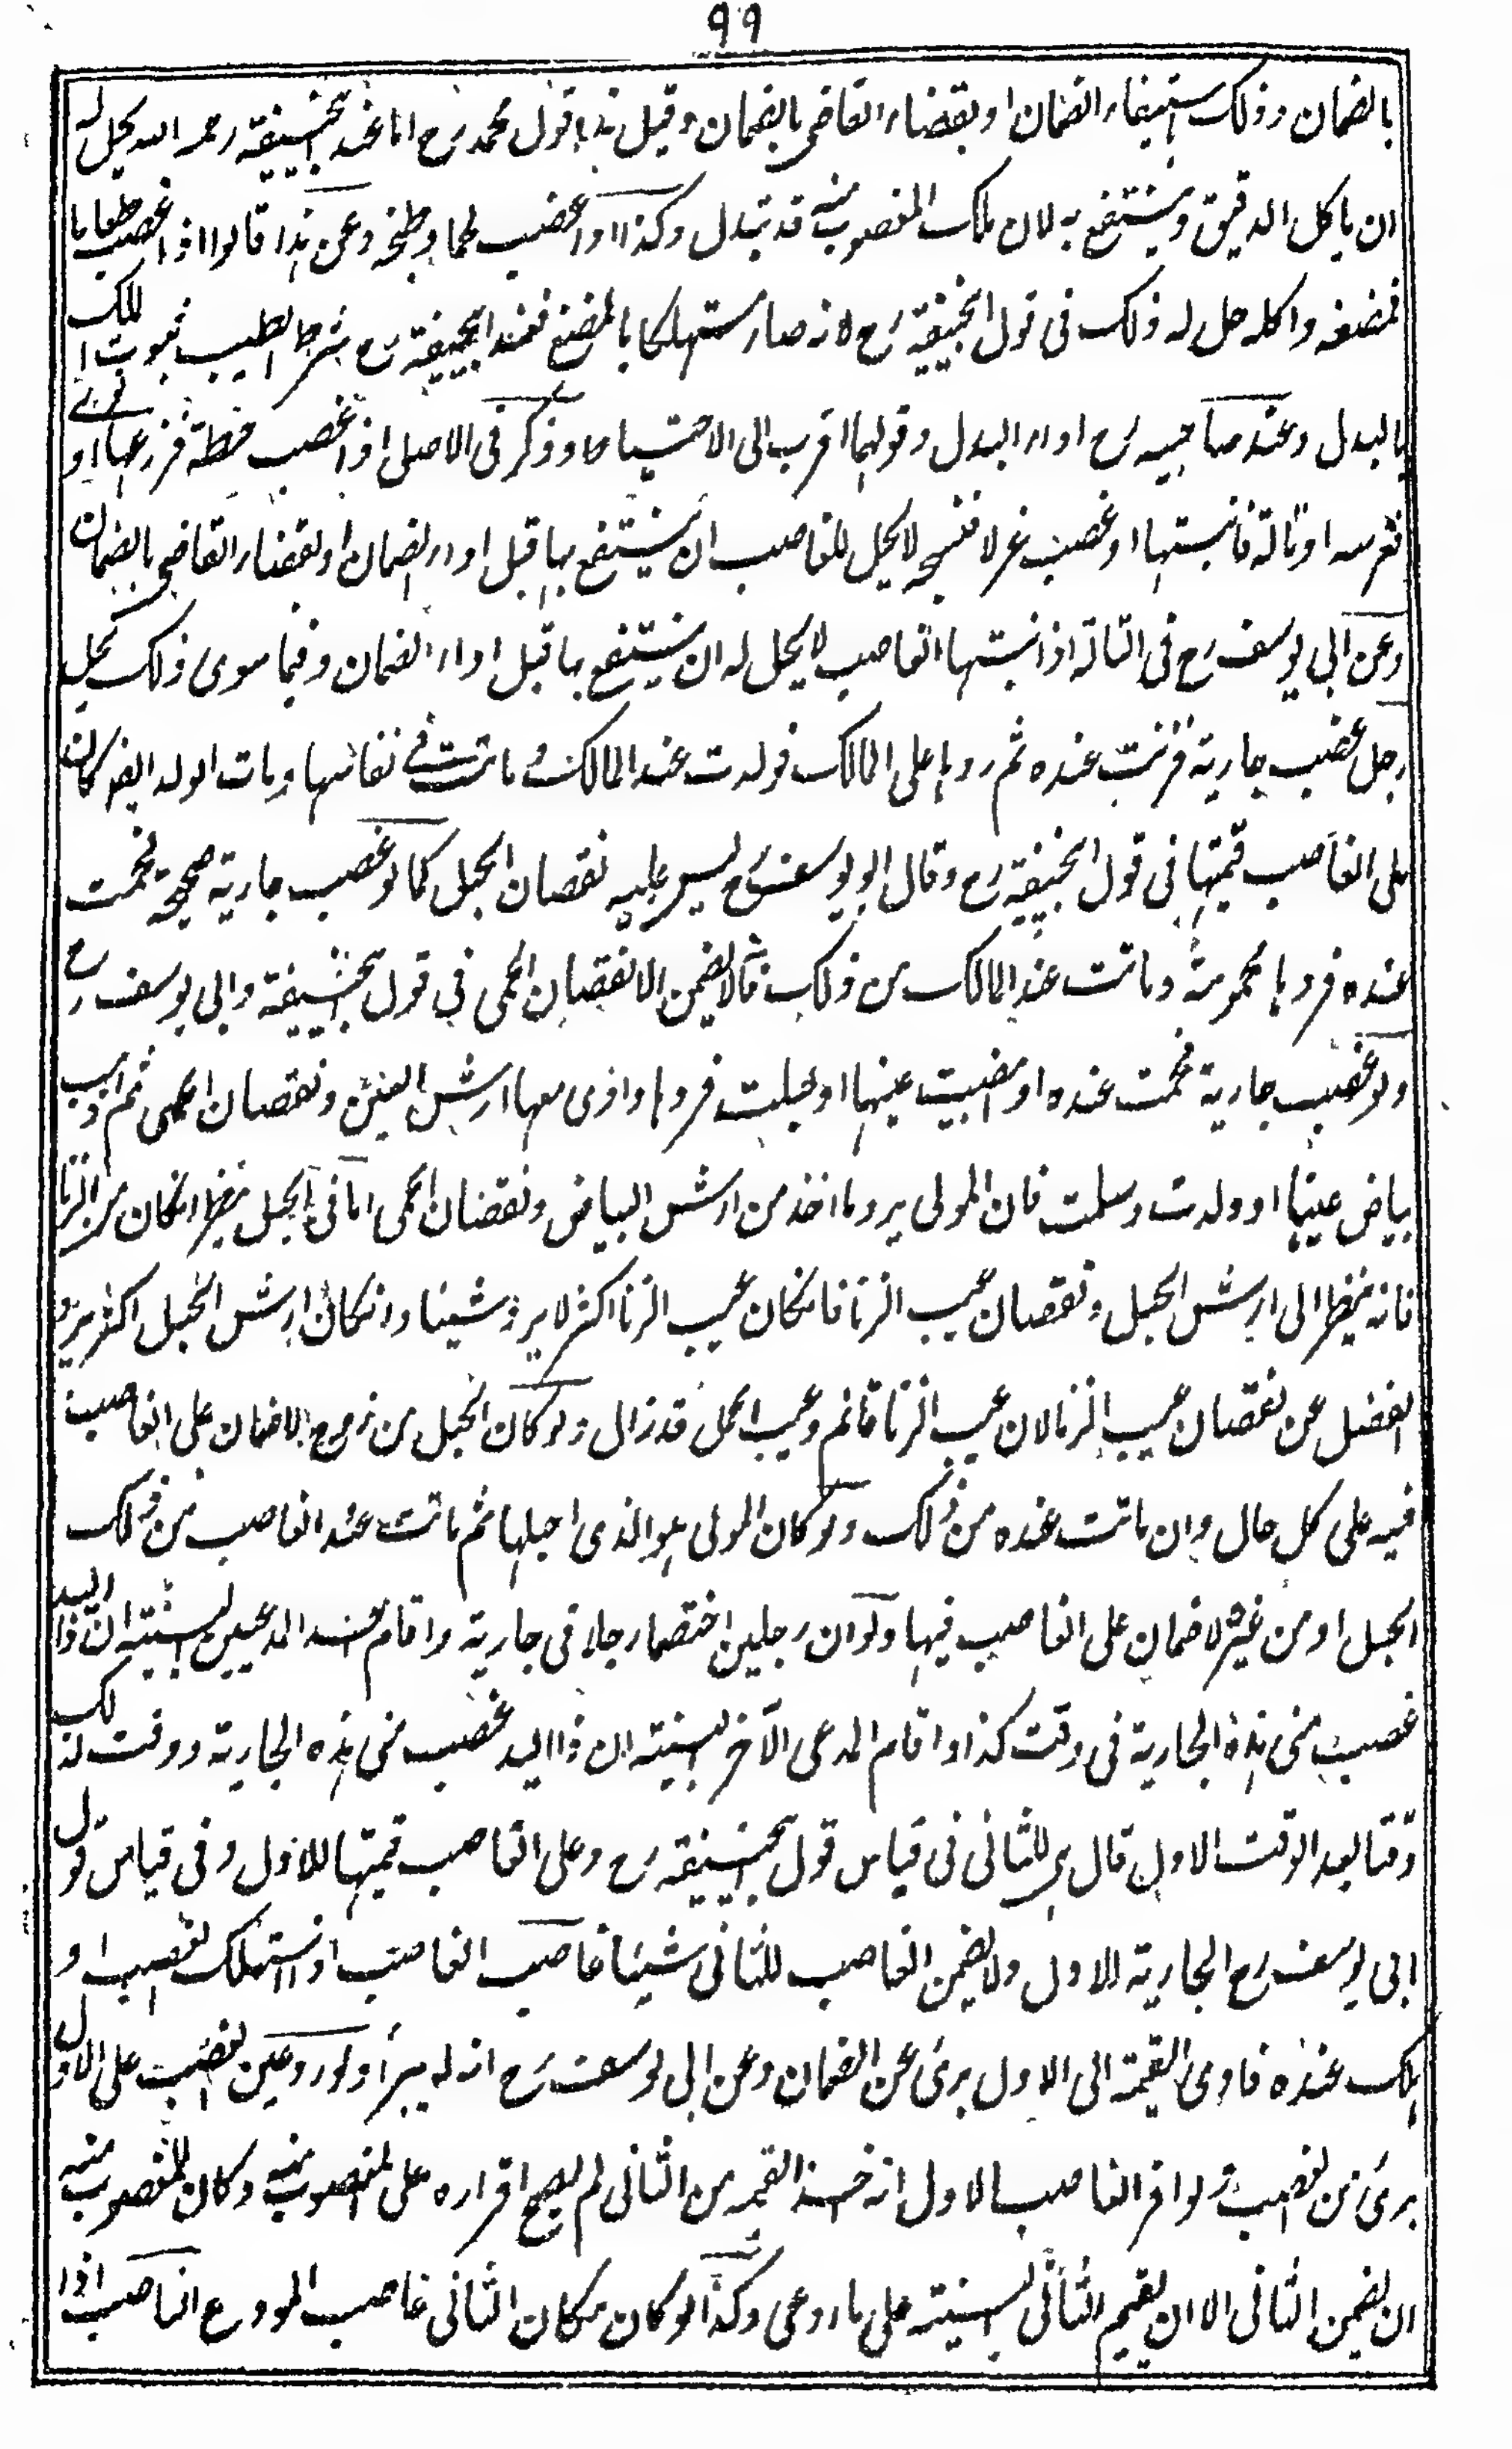 ٩٩
بالضمان وذلك باستيفاء الضمان او بقضاء القاضى بالضمان وقيل هذا قول محمد رح اما عند ابيحنيفة رحمه الله يحل له
ان ياكل الدقيق وينتفع به لان ملك المغصوب منه قد تبدل وكذا اذا غصب لحما وطبخه وعن هذا قالوا اذا غصب طعاما
فمضغه واكله حل له ذلك فى قول ابيحنيفة رح لانه صار مستهلكا بالمضغ فعند ابيحنيفة رح شرط الطيب ثبوت الملك
بالبدل وعند صاحبيه رح اداء البدل وقولهما اقرب الى الاحتياط وذكر فى الاصل اذا غصب حنطة فزرعها او نوى
فغرسه او تالة فانبتها او غصب غزلا فنسجه لا يحل للغاصب ان ينتفع بها قبل اداء الضمان او بقضاء القاضى بالضمان
وعن ابى يوسف رح فى التالة اذا انبتها الغاصب لا يحل له ان ينتفع بها قبل اداء الضمان وفيما سوى ذلك يحل
رجل غصب جارية فزنت عنده ثم ردها على المالك فولدت عند المالك وماتت فى نفاسها ومات الولد ايضا كان
على الغاصب قيمتها فى قول ابيحنيفة رح وقال ابو يوسف رح ليس عليه نقصان الحبل كما لو غصب جارية صحيحة فحمت
عنده فردها محمومة وماتت عند المالك من ذلك فانه لا يضمن الا نقصان الحمى فى قول ابيحنيفة وابى يوسف رح
ولو غصب جارية فحمت عنده او ابيضت عينها او حبلت فردها وادى معها ارش العين ونقصان الحمى ثم ذهب
بياض عينها او ولدت وسلمت فان المولى يرد ما اخذ من ارش البياض ونقصان الحمى اما فى الحبل ينظر ان كان من الزنا
فانه ينظر الى ارش الحبل ونقصان عيب الزنا فان كان عيب الزنا اكثر لا يرد شيئا وان كان ارش الحبل اكثر يرد
الفضل عن نقصان عيب الزنا لان عيب الزنا قائم وعيب الحبل قد زال ولو كان الحبل من زوج لا ضمان على الغاصب
فيه على كل حال وان ماتت عنده من ذلك ولو كان المولى هو الذى احبلها ثم ماتت عند الغاصب من ذلك
الحبل او من غيره لا ضمان على الغاصب فيها ولو ان رجلين اختصما رجلا فى جارية واقام احد المدعيين البينة ان ذا اليد
غصب منى هذه الجارية فى وقت كذا واقام المدعى الآخر البينة ان ذا اليد غصب منى هذه الجارية ووقت لذلك
وقتا بعد الوقت الاول قال هى للثانى فى قياس قول ابيحنيفة رح وعلى الغاصب قيمتها للاول وفى قياس قول
ابى يوسف رح الجارية للاول ولا يضمن الغاصب للثانى شيئا غاصب الغاصب اذا استهلك الغصب او
هلك عنده فادى القيمة الى الاول برئ عن الضمان وعن ابى يوسف رح انه لا يبرأ ولو رد عين الغصب على الاول
برئ من الغصب ولو اقر الغاصب الاول انه اخذ القيمة من الثانى لم يصح اقراره على المغصوب منه وكان للمغصوب منه
ان يضمن الثانى الا ان يقيم الثانى البينة على ما ادعى وكذا لو كان مكان الثانى غاصب المودع الغاصب اذا